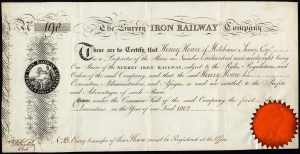 No. 190
The Surrey IRON RAILWAY Company
These are to Certify, that Henry Hoare of Mitcham Surry Esqr.
is a Proprietor of the Share or Number
One Share of the SURREY IRON RAILWAY, subject to the Rules, Regulations, and
Orders of the said Company, and that the said Henry Hoare his
Executors, Administrators and Assigns, is and are entitled to the Profits
and Advantages of such Share.
Given under the Common Seal of the said Company the first
Day of in the Year of our Lord 1803
N.B. Every transfer of this Share must be Registered at the Office.